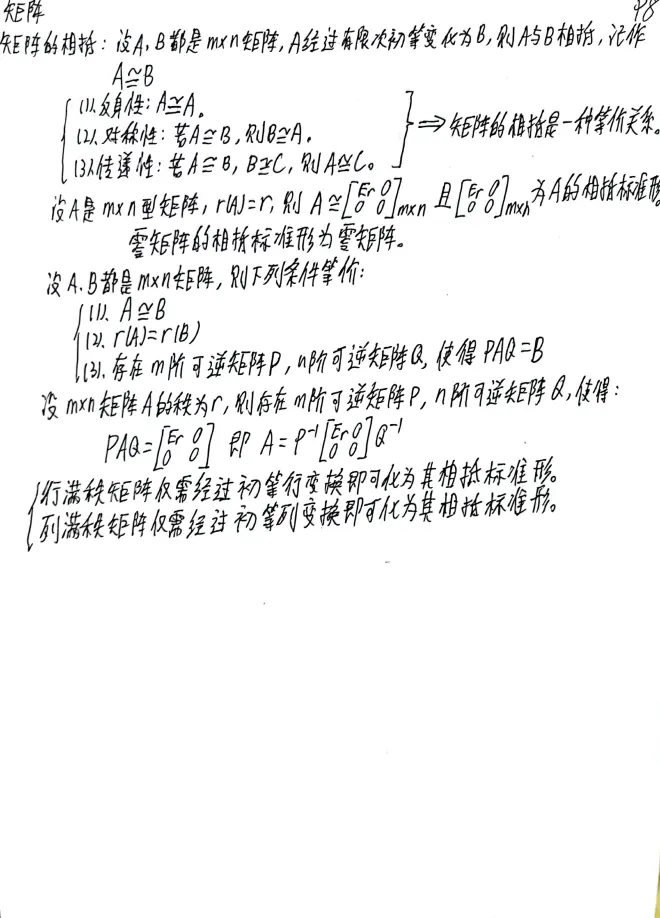 矩阵 P8
矩阵的相抵：设A、B都是m×n矩阵，A经过有限次初等变化为B，则A与B相抵，记作
A≅B
(1).反身性：A≅A。
(2).对称性：若A≅B，则B≅A。 ⇒矩阵的相抵是一种等价关系。
(3).传递性：若A≅B，B≅C，则A≅C。
设A是m×n型矩阵，r(A)=r，则 A≅[Er 0 0 0]m×n 且 [Er 0 0 0]m×n 为A的相抵标准形
零矩阵的相抵标准形为零矩阵。
设A、B都是m×n矩阵，则下列条件等价：
(1). A≅B
(2). r(A)=r(B)
(3). 存在m阶可逆矩阵P，n阶可逆矩阵Q，使得PAQ=B
设m×n矩阵A的秩为r，则存在m阶可逆矩阵P，n阶可逆矩阵Q，使得：
PAQ=[Er 0 0 0] 即 A=P⁻¹[Er 0 0 0]Q⁻¹
行满秩矩阵仅需经过初等行变换即可化为其相抵标准形。
列满秩矩阵仅需经过初等列变换即可化为其相抵标准形。